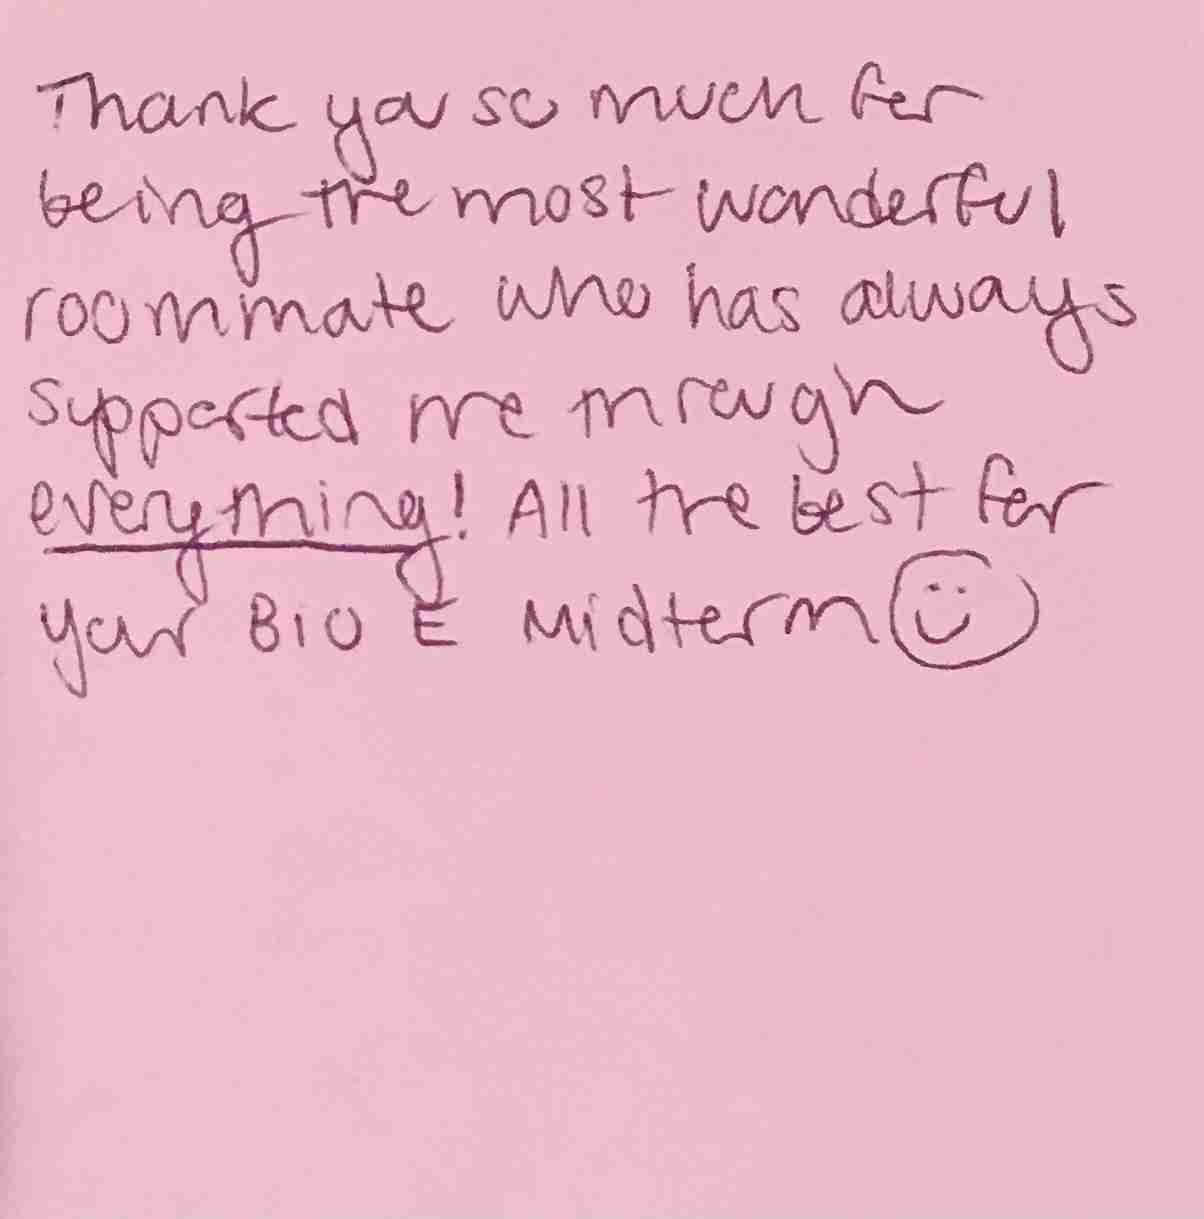 Thank you so much for
being the most wonderful
roommate who has always
supported me through
everything! All the best for
your BIO E Midterm